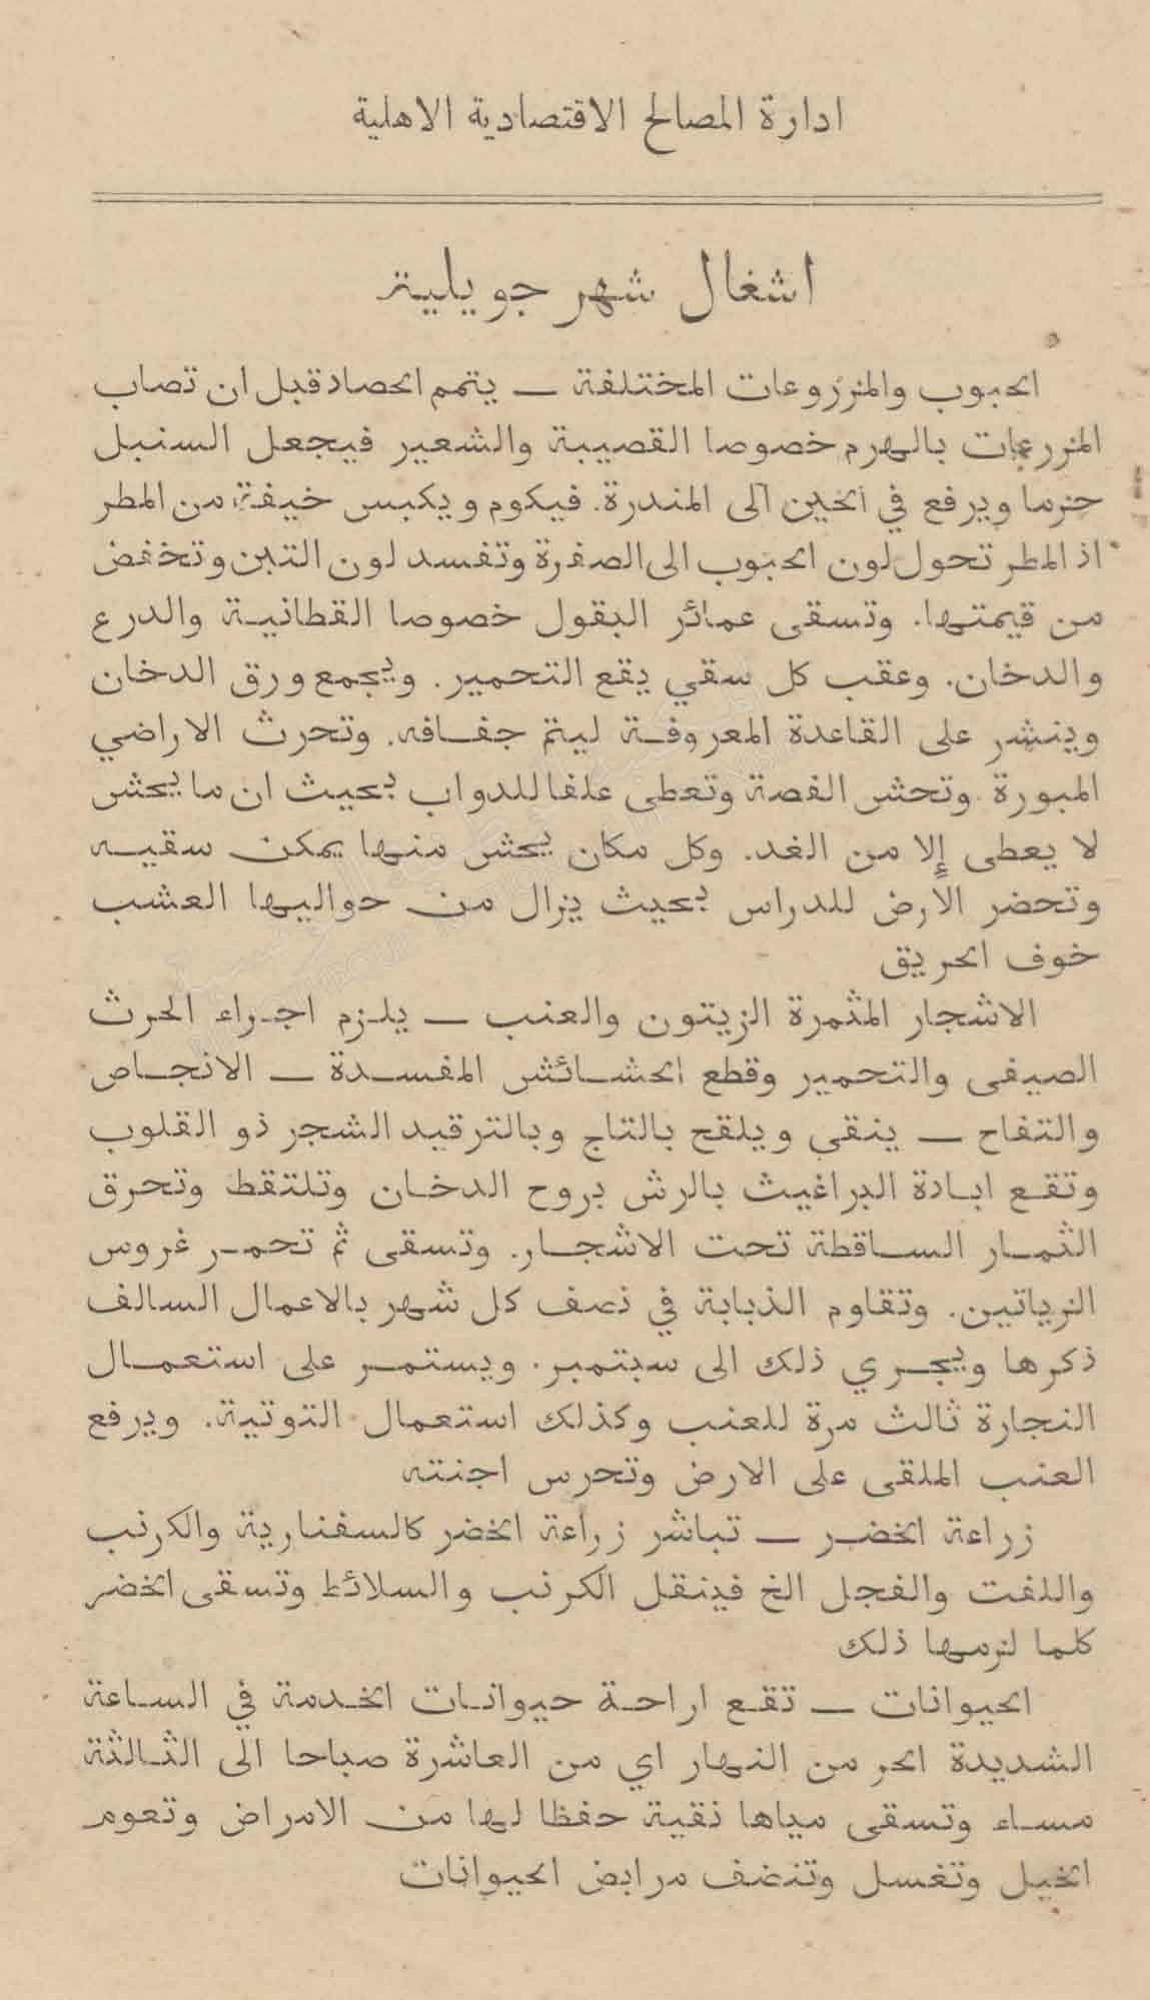 ادارة المصالح الاقتصادية الاهلية
اشغال شهر جويلية
الحبوب والمزروعات المختلفة — يتمم الحصاد قبل ان تصاب
المزروعات بالهرم خصوصا القصيبة والشعير فيجعل السنبل
حزما ويرفع في الحين الى المندرة. فيكوم ويكبس خيفة من المطر
اذ المطر تحول لون الحبوب الى الصفرة وتفسد لون التبن وتخفض
من قيمتها. وتسقى عمائر البقول خصوصا القطانية والدرع
والدخان. وعقب كل سقي يقع التحمير. ويجمع ورق الدخان
وينشر على القاعدة المعروفة ليتم جفافه. وتحرث الاراضي
المبورة وتحش الفصة وتعطى علفا للدواب بحيث ان ما يحش
لا يعطى إلا من الغد. وكل مكان يحش منها يمكن سقيه
وتحضر الارض للدراس بحيث يزال من حواليها العشب
خوف الحريق
الاشجار المثمرة الزيتون والعنب — يلزم اجراء الحرث
الصيفى والتحمير وقطع الحشائش المفسدة — الانجاص
والتفاح — ينقى ويلقح بالتاج وبالترقيد الشجر ذو القلوب
وتقع ابادة البراغيث بالرش بروح الدخان وتلتقط وتحرق
الثمار الساقطة تحت الاشجار. وتسقى ثم تحمر غروس
الزياتين. وتقاوم الذبابة في نصف كل شهر بالاعمال السالف
ذكرها ويجري ذلك الى سبتمبر. ويستمر على استعمال
النجارة ثالث مرة للعنب وكذلك استعمال التوتية. ويرفع
العنب الملقى على الارض وتحرس اجنته
زراعة الخضر — تباشر زراعة الخضر كالسفنارية والكرنب
واللفت والفجل الخ فينقل الكرنب والسلائط وتسقى الخضر
كلما لزمها ذلك
الحيوانات — تقع اراحة حيوانات الخدمة في الساعة
الشديدة الحر من النهار اي من العاشرة صباحا الى الثالثة
مساء وتسقى مياها نقية حفظا لها من الامراض وتعوم
الخيل وتغسل وتنضف مرابض الحيوانات